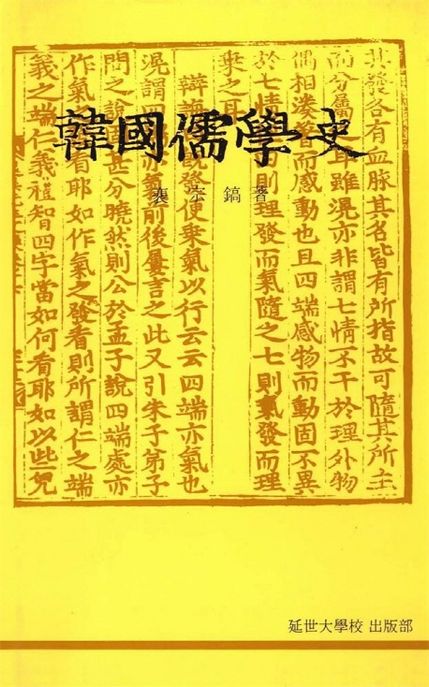 韓國儒學史
裵宗鎬 著
其發各有血脉其名皆有所指故可隨其所主
而分屬之耳雖滉亦非謂七情不干於理外物
偶相湊著而感動也且四端感物而動固不異
於七情則理發而氣隨之七則氣發而理
乘之耳
辯誨發便乘氣以行云云四端亦氣也
滉謂四氣前後屢言之此又引朱子弟子
問之說甚分曉然則公於孟子說四端處亦
作氣看耶如作氣之發看則所謂仁之端
義之端仁義禮智四字當如何看耶如以些兒
延世大學校 出版部